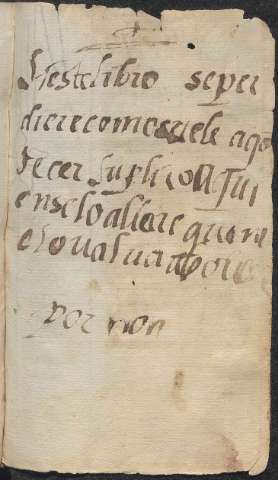 Sieste libro seper
diere como suele aqo
tecer suplico A qui
en se lo aliare que me
lo vuelva
por non